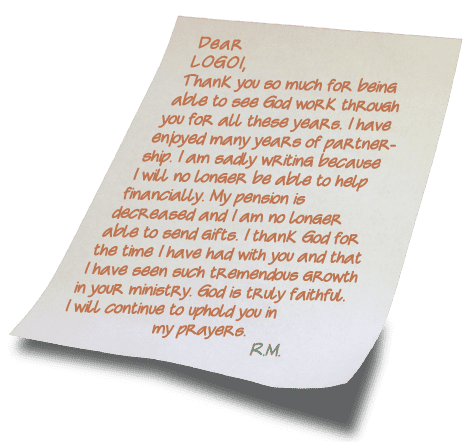 Dear
LOGOI,
Thank you so much for being
able to see God work through
you for all these years. I have
enjoyed many years of partner-
ship. I am sadly writing because
I will no longer be able to help
financially. My pension is
decreased and I am no longer
able to send gifts. I thank God for
the time I have had with you and that
I have seen such tremendous growth
in your ministry. God is truly faithful.
I will continue to uphold you in
my prayers.
R.M.